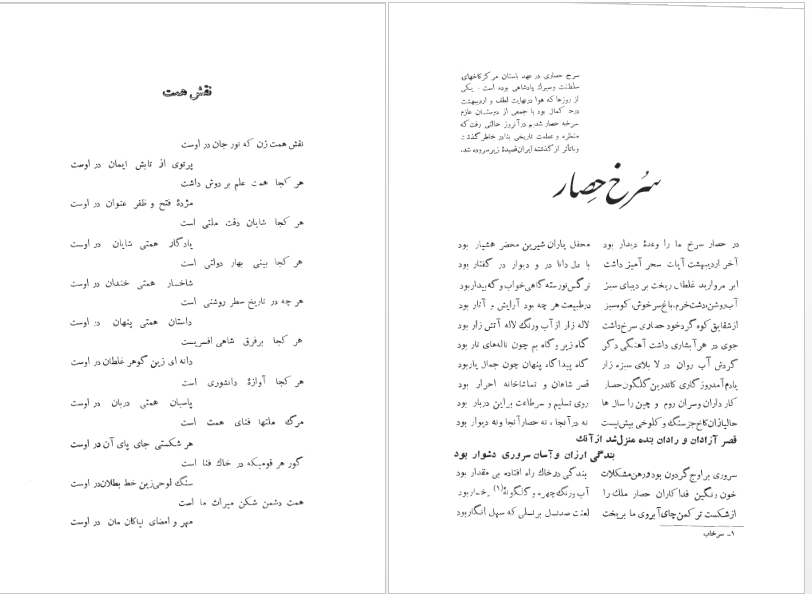 سرخ حصاری در عهد باستان مرکز کاخهای
سلطنت و سیرک پادشاهی بوده است . یکی
از روزها که هوا در نهایت لطف و اردیبهشت
در حد کمال بود با جمعی از دوستان عازم
سرخه حصار شدیم در آنروز حالتی رفت که
منظره و عظمت تاریخی بنا در خاطر گذشت
و متأثر از گذشته ایران قصیدهٔ زیر سروده شد.
سُرخ حِصار
در حصار سرخ ما را وعدهٔ دیدار بود
محفل یاران شیرین محضر هشیار بود
آخر اردیبهشت آیات سحر آمیز داشت
با دل دانا در و دیوار در گفتار بود
ابر مروارید غلطان ریخت بر دیبای سبز
نرگس نورسته گاهی خواب و گه بیدار بود
آب روشن، دشت خرم، باغ سرخوش، کوه سبز
در طبیعت هر چه بود آرایش و آثار بود
از شقایق کوه گرد خود حصاری سرخ داشت
لاله زار از آب و رنگ لاله آتش زار بود
جوی در هر آبشاری داشت آهنگی دگر
گاه زیر و گاه بم چون ناله‌های تار بود
گردش آب روان در لا بلای سبزه زار
گاه پیدا گاه پنهان چون جمال یار بود
یادم آمد روزگاری کاندرین گلگون حصار
قصر شاهان و تماشاخانه احرار بود
کار داران و سران روم و چین را سال ها
روی تسلیم و سر طاعت بر این دربار بود
حالیا زان کاخ جز سنگ و کلوخی بیش نیست
نه در آنجا ، نه حصار آنجا و نه دیوار بود
قصر آزادان و رادان بنده منزل شد از آنک
بندگی ارزان و آسان سروری دشوار بود
سروری بر اوج گردون بود و رهن مشکلات
بندگی در خاک راه افتاده بی مقدار بود
خون رنگین فداکاران حصار ملک را
آب و رنگ چهره و گلگونهٔ (۱) رخسار بود
از شکست تر کمن چای آبروی ما بریخت
لعنت صد نسل بر نسلی که سهل انگار بود
۱ـ سرخاب
نقش همت
نقش همت زن که نور جان در اوست
پرتوی از تابش ایمان در اوست
هر کجا همت علم بر دوش داشت
مژدهٔ فتح و ظفر عنوان در اوست
هر کجا شایان دقت ملتی است
یادگار همتی شایان در اوست
هر کجا بینی بهار دولتی است
شاخسار همتی خندان در اوست
هر چه در تاریخ سطر روشنی است
داستان همتی پنهان در اوست
هر کجا بر فرق شاهی افسریست
دانه ای زین گوهر غلطان در اوست
هر کجا آوازهٔ دانشوری است
پاسبان همتی دربان در اوست
مرگ ملتها فنای همت است
هر شکستی جای پای آن در اوست
گور هر قومیکه در خاک فنا است
سنگ لوحی زین خط بطلان در اوست
همت دشمن شکن میراث ما است
مهر و امضای نیاکان مان در اوست